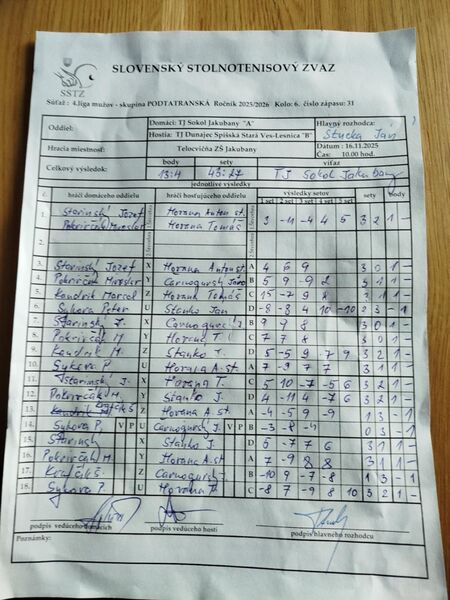 SLOVENSKÝ STOLNOTENISOVÝ ZVÄZ
SSTZ
Súťaž : 4.liga mužov - skupina PODTATRANSKÁ Ročník 2025/2026 Kolo: 6. číslo zápasu: 31
Oddiel: Domáci: TJ Sokol Jakubany "A" Hlavný rozhodca:
Hostia: TJ Dunajec Spišská Stará Ves-Lesnica "B" Stucka Ján
Hracia miestnosť: Telocvičňa ZŠ Jakubany Dátum : 16.11.2025
Čas: 10.00 hod.
Celkový výsledok: body sety víťaz
13:4 43:27 TJ Sokol Jakubany
jednotlivé výsledky
č. hráči domáceho oddielu hráči hosťujúceho oddielu výsledky setov sety body
1 set 2 set 3 set 4 set 5 set
1. Starinský Jozef Horana Anton st. 3 -11 -4 4 5 3 2 1 -
Pokrivčák Miroslav Horana Tomáš
2.
3. Starinský Jozef X Horana Anton st. A 4 6 9 3 0 1 -
4. Pokrivčák Miroslav Y B 5 9 -9 2 3 1 1 -
5. Kandrik Marcel Z Horana Tomáš C 15 -7 9 8 3 1 1 -
6. Sykora Peter U Stanko Ján D -8 -8 4 10 -10
7. Starinský J. X B 9 9 8 3 0 1 -
8. Pokrivčák M. Y Horana T. C 7 7 8 3 0 1 -
9. Kandrik M. Z Stanko J. D 5 -5 9 -7 9 3 2 1 -
10. Sykora P. U Horana A. st A 7 -9 7 7 3 1 1 -
11. Starinský J. X Horana T. C 5 10 -7 -5 6 3 2 1 -
12. Pokrivčák M. Y Stanko J. D 4 -11 4 -7 6 3 2 1 -
13. Z Horana A. st A -4 -5 9 -9 1 3 - 1
14. Sykora P. U V P U V P B B -3 -8 -4 0 3 - 1
15. Starinský X Stanko J. D 5 -7 7 6 3 1 1 -
16. Pokrivčák M. Y Horana A. st A 7 -9 8 8 3 1 1 -
17. Z B -10 9 -7 -8 1 3 - 1
18. Sykora P. U Horana T. C -8 7 -9 8 10 3 2 1 -
podpis vedúceho domácich podpis vedúceho hostí podpis hlavného rozhodcu
Poznámky: